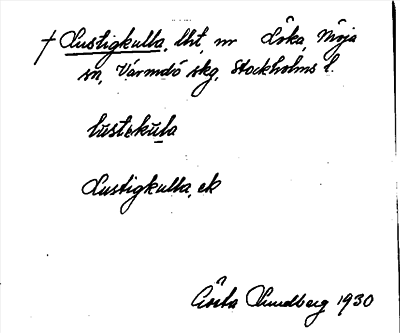 † Lustigkulla, lht, nr Löka, Möja
sn, Värmdö skg, Stockholms l.
lustekula
Lustigkulla, ek
Gösta Sundberg 1930